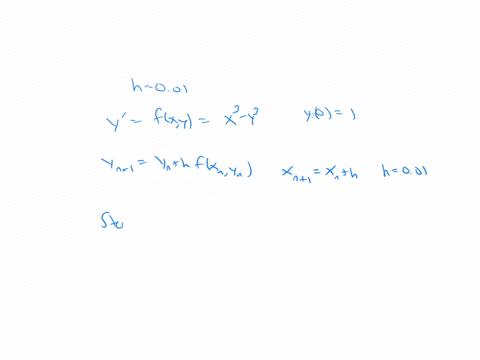 h=0.01
y' = f(x,y) = x³-y³ y(0) = 1
yₙ₊₁ = yₙ+h f(xₙ,yₙ) xₙ₊₁ = xₙ+h h=0.01
Ste